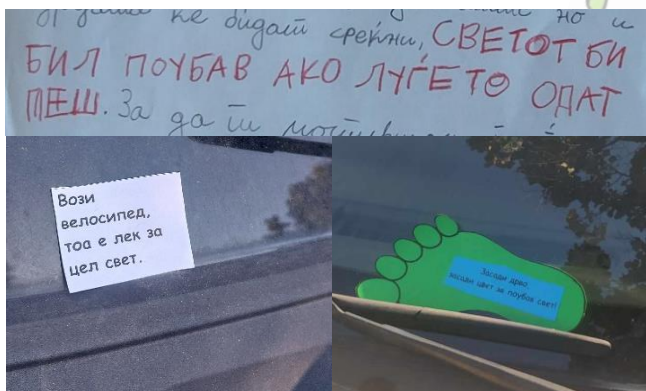 ќе бидат среќни, СВЕТОТ БИ
БИЛ ПОУБАВ АКО ЛУЃЕТО ОДАТ
ПЕШ. За да ти
Вози
велосипед,
тоа е лек за
цел свет.
Засади дрво,
засади цвет за поубав свет!